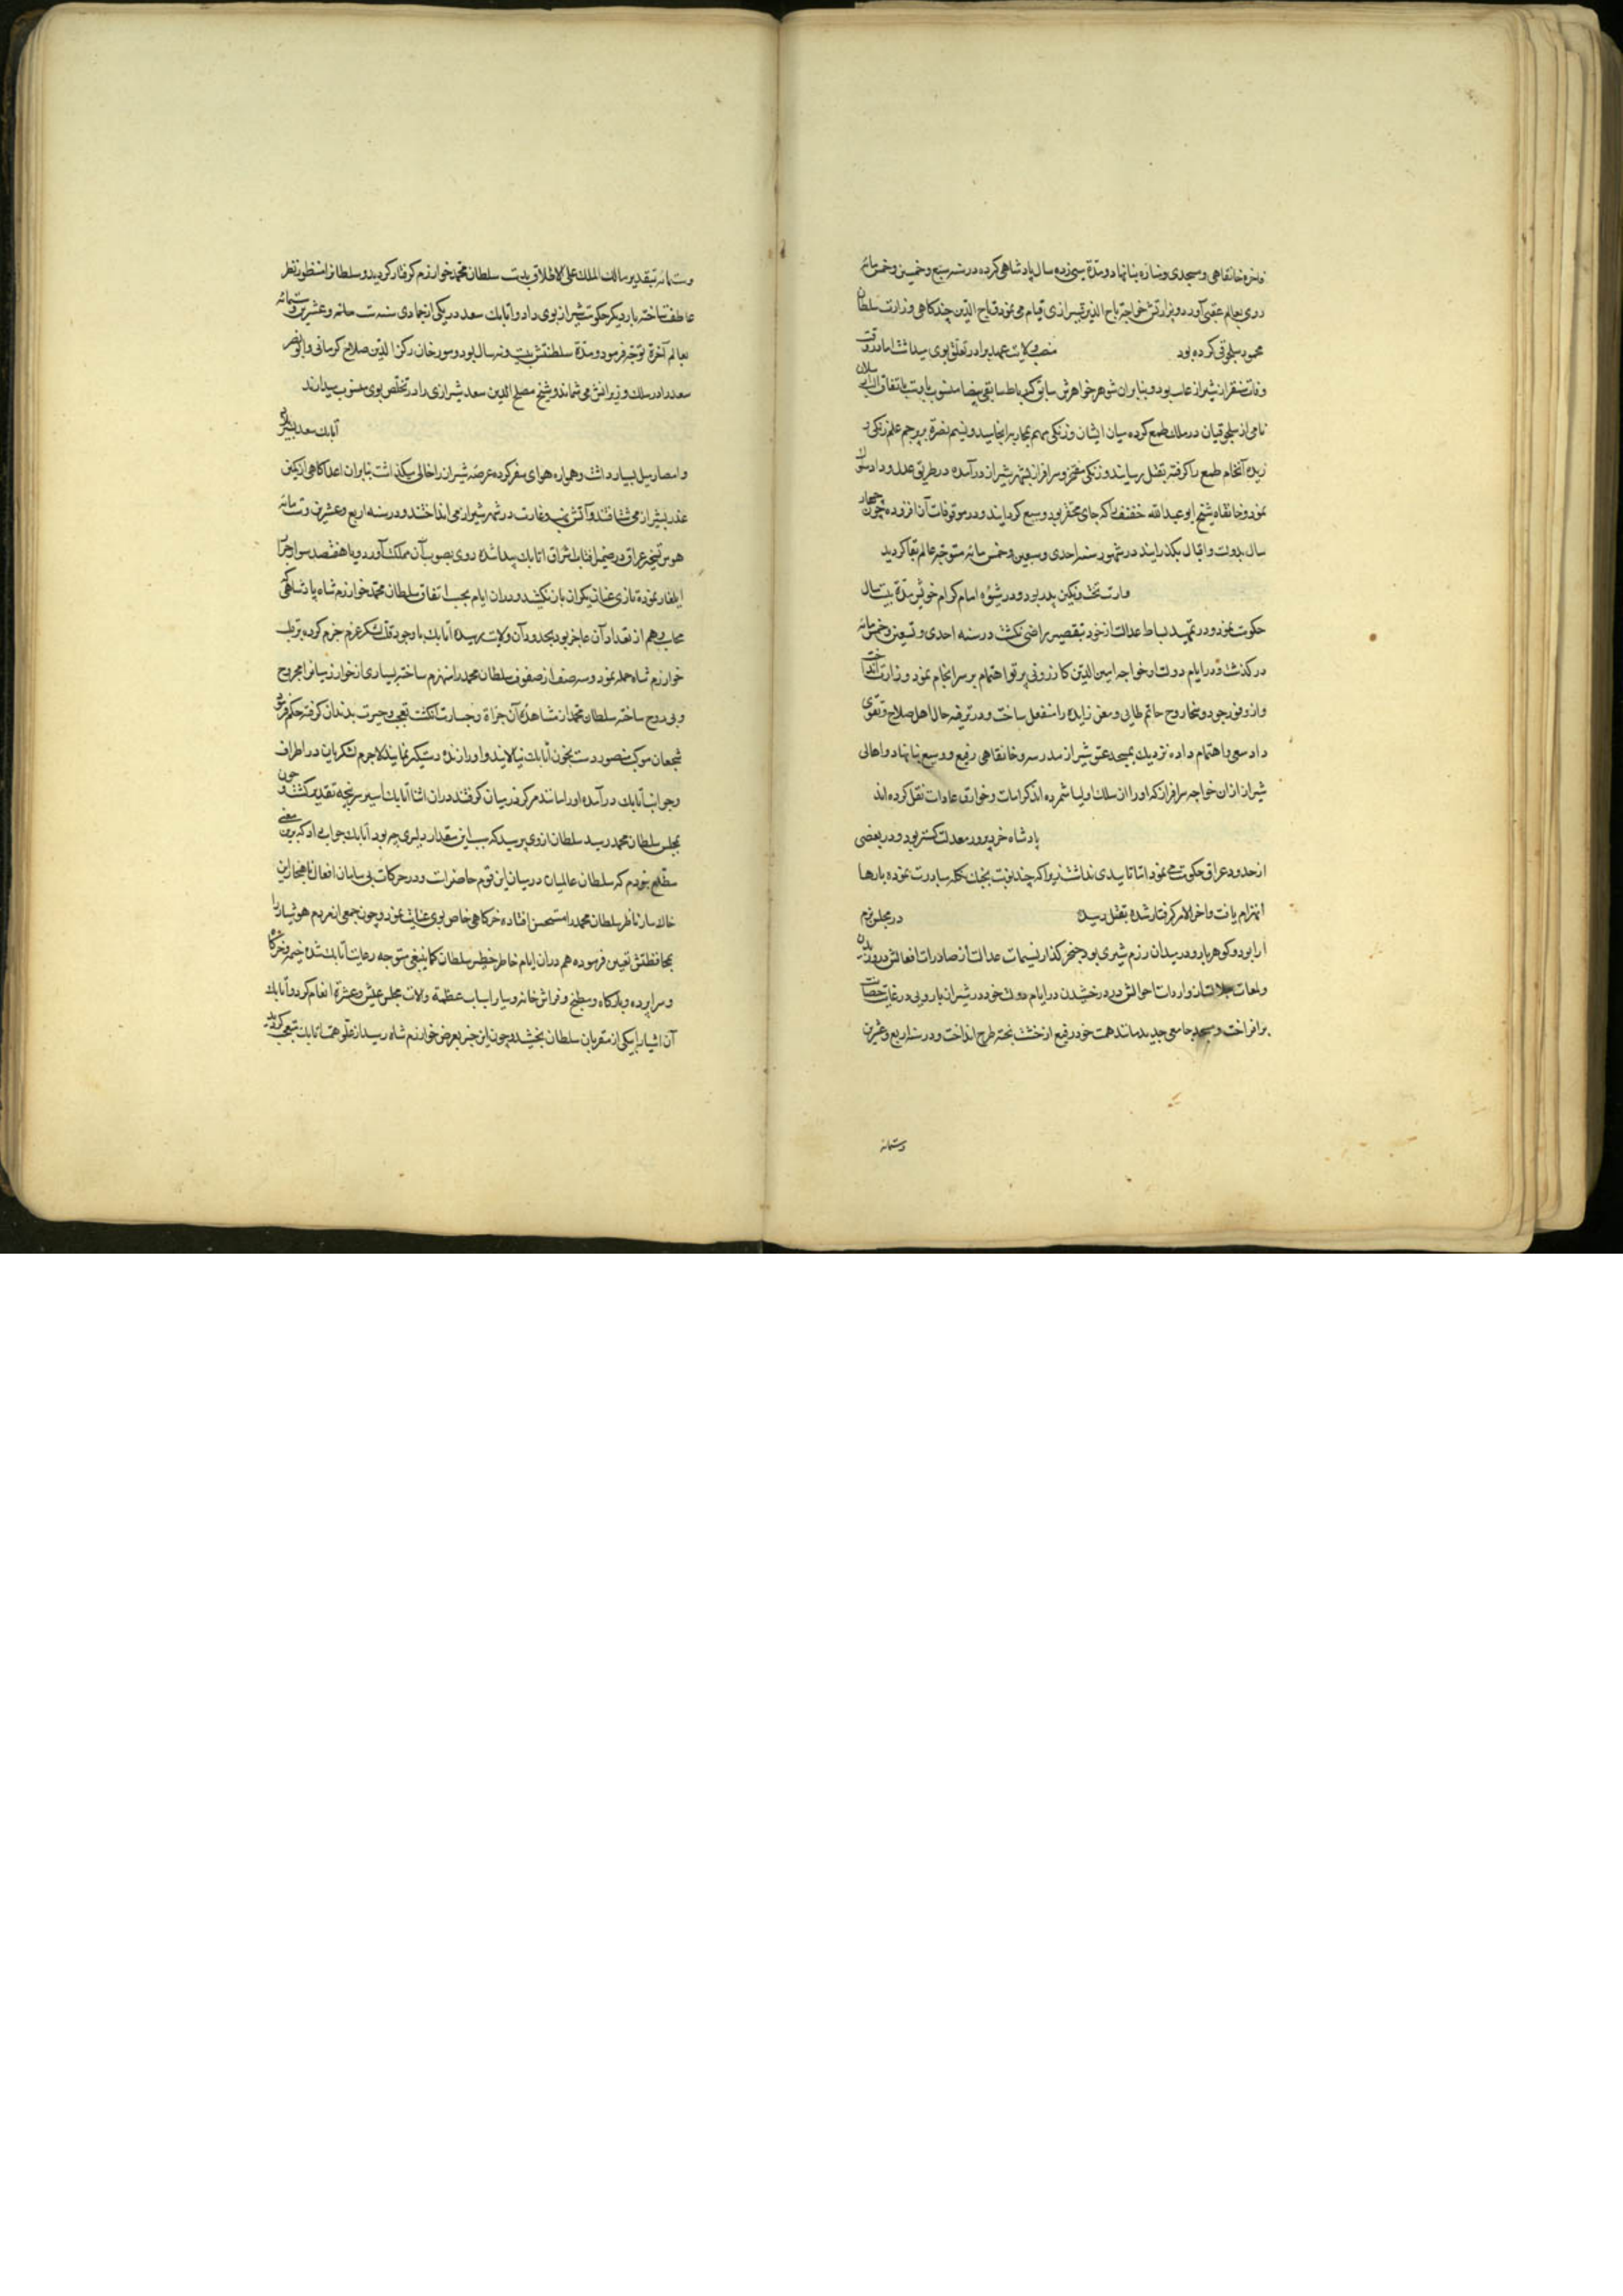 فاخره خانقاهی و مسجدی و مناره بنا نهاد و مدّة سیزده سال پادشاهی کرده در سنه سبع و خمسین و خمس مائه
روی بعالم عقبی آورد و بوزارتش خواجه تاج الدین شیرازی قیام می نمود و تاج الدین چند کاهی وزارت سلطان
محمود سلجوقی کرده بود
منصب ولایت عهد برادر تعلق بوی میداشت اما در وقت
وفات سنقر از شیراز غایب بود و بنابران شوهر خواهرش سابق که رباط سابقی بیضا منسوب باوست باتفاق الب ارسلان
نامی از سلجوقیان در ملک طمع کرده میان ایشان و زنکی مهم بمحاربه انجامید و نسیم نصرة بر پرچم علم زنکی
وزیده آنخام طمع را کرفته بقتل رسانید و زنکی مفتخر و سرافراز بشهر شیراز درآمده در طریق عدل و داد سلوک
نمود و خانقاه شیخ ابو عبد الله خفیف را که جای محقر بود وسیع کردانید و در موقوفات آن افزوده چون چهار
سال بدولت و اقبال بکذرانید در شهور سنه احدی و سبعین و خمس مائه متوجه عالم بقا کردید
وارث تخت و نکین پدر بود و در شیوه امام کرام خویش مدّة بیست سال
حکومت نمود و در تمهید بساط عدالت از خود بتقصیر راضی نکشت در سنه احدی و تسعین و خمس مائه
درکذشت و در ایام دولت او خواجه امین الدین کازرونی پرتو اهتمام بر سرانجام نمود وزارت انداخت
و از وفور جود و سخا روح حاتم طایی و معن زایده را منفعل ساخت و در ترفیه حال اهل صلاح و تقوی
داد سعی و اهتمام داده نزدیک بمسجد عتیق شیراز مدرسه و خانقاهی رفیع و وسیع بنا نهاد و اهالی
شیراز ازان خواجه سرافراز که او را از سلک اولیا شمرده اند کرامات و خوارق عادات نقل کرده اند
پادشاه خرد پرور معدلت کستر بود و در بعضی
از حدود عراق حکومت می نمود اما تاییدی نداشت زیرا که چند نوبت بجنک تکله مبادرت نموده بارها
انهزام یافت و اخر الامر کرفتار شده بقتل رسید
در مجلس بزم
ابرا بود و کوهر بار و در میدان رزم شیری بود خنجر کذار نسیمات عدالت از صادرات افعالش در وزیدن
و لمعات جلالت از واردات احوالش در درخشیدن در ایام دولت خود در شیراز بارویی در غایت حصانت
برافراخت و مسجد جامعی جدید مانند همت خود رفیع از خشت پخته طرح انداخت و در سنه اربع و عشرین
وستمائه
وستمائه بتقدیر مالک الملک علی الاطلاق بدست سلطان محمد خوارزم کرفتار کردید و سلطان او را منظور نظر
عاطفت ساخته بار دیکر حکومت شیراز بوی داد و اتابک سعد در یکی از جمادی سنه ثمان و عشرین و ستمائه
بعالم آخرة توجه فرمود و مدّة سلطنتش بیست و نه سال بود و مورخان رکن الدین صلاح کرمانی و ابو نصر
سعد را در سلک وزیرانش می شمارند و شیخ مصلح الدین سعد شیرازی را در تخلص بوی منسوب میدارند
اتابک سعد بسیر بلاد
و امصار میل بسیار داشت و همواره هوای سفر کرده عرصه شیراز را خالی میکذاشت بنابران اعدا کاهی از کمین
غدر بشیراز می شتافتند و آتش نهب و غارت در شهر شیراز می انداختند و در سنه اربع و عشرین وستمائه
هوس تسخیر عراق در ضمیر آفتاب اشراق اتابک پیدا شده روی بصوب آن مملکت آورد و با هفتصد سوار جرار
ایلغار نموده تا ری عنان یکران باز نکشید و دران ایام بحسب اتفاق سلطان محمد خوارزم شاه با سپاهی که
محاسب وهم از تعداد آن عاجز بود بحدود آن ولایت رسیده اتابک با وجود قلت لشکر عزم جزم کرده بر قلب
خوارزم شاه حمله نمود و سه صف از صفوف سلطان محمد را منهزم ساخته بسیاری از خوارزمیانرا مجروح
و بی روح ساخته سلطان محمد از مشاهدهٔ آن جراة و جسارت انکشت تعجب و حیرت بدندان کرفته حکم فرمود که
شجعان موکب منصور دست بخون اتابک نیالایند و او را زنده دستکیر نمایند لاجرم لشکریان در اطراف
و جوانب اتابک درآمده او را مانند مرکز در میان کرفتند دران اثنا اتابک اسیر سرپنجه تقدیر کشت و چون
بمجلس سلطان محمد رسید سلطان از وی پرسید که سبب این مقدار دلیری چه بود اتابک جواب داد که برین معنی
مطلع نبودم که سلطان عالمیان درمیان این قوم حاضرات و در حرکات بی سامان افعال ناهنجار این
خاکسار ناظر سلطان محمد را مستحسن افتاده خرکاهی خاص بوی عنایت نمود و چون جمعی از مردم هوشیار را
بمحافظتش تعیین فرموده هم دران ایام خاطر خطیر سلطان کما ینبغی متوجه رعایت اتابک شده خیمه و خرکاه
و سراپرده و بارکاه و مطبخ و فراش خانه و سایر اسباب عظمة و آلات مجلس عیش و عشرة انعام کرد و اتابک
آن اشیا را بیکی از مقربان سلطان بخشید و چون این خبر بعرض خوارزم شاه رسید از علو همت اتابک متعجب کردید